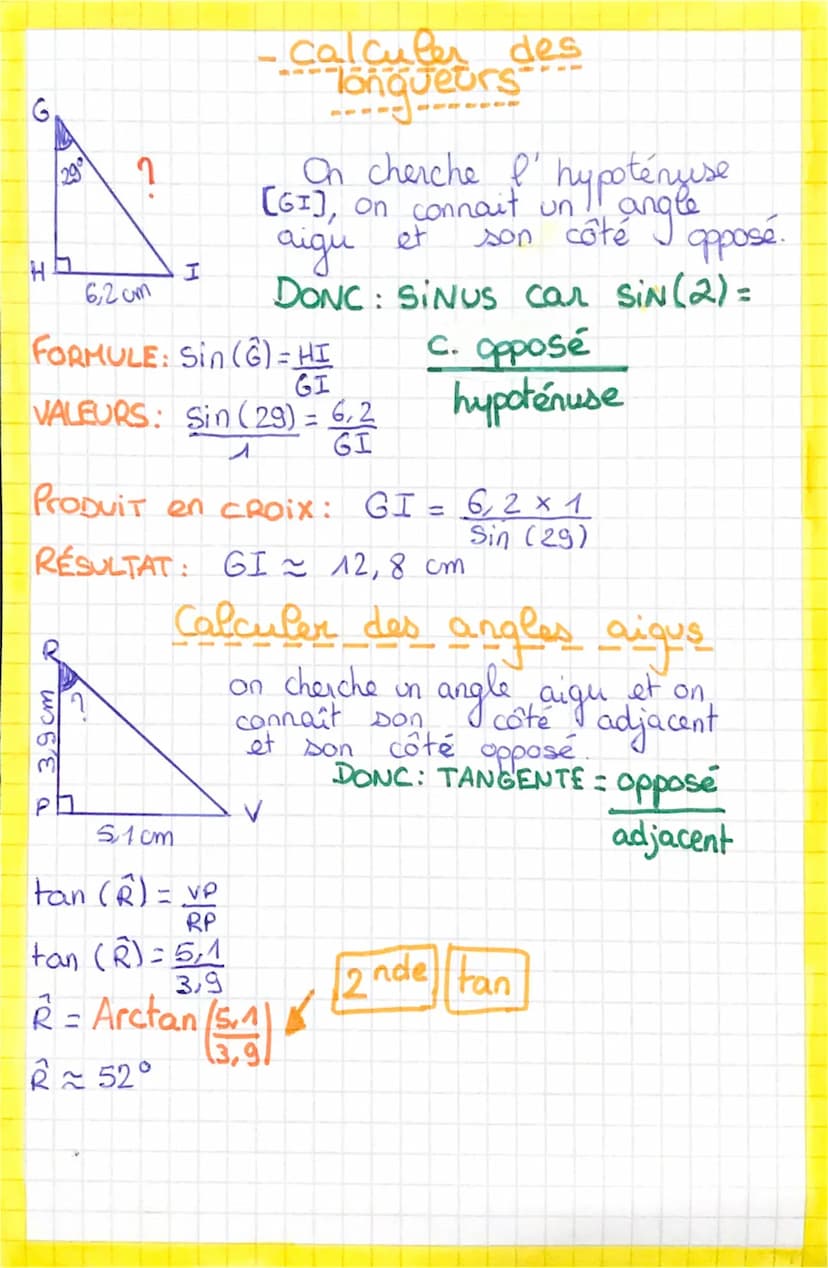 - Calculer des
longueurs
G
29°
?
H
I
6,2 cm
On cherche l'hypoténuse
[GI], on connait un angle
aigu et son côté opposé.
DONC : SINUS car SIN(2) =
c. opposé
hypoténuse
FORMULE : Sin(Ĝ) = HI
GI
VALEURS : Sin(29) = 6,2
1 GI
PRODUIT en CROIX : GI = 6,2 × 1
Sin (29)
RÉSULTAT : GI ≈ 12,8 cm
Calculer des angles aigus
R
?
3,9 cm
P
V
5,1 cm
on cherche un angle aigu et on
connaît son côté adjacent
et son côté opposé.
DONC : TANGENTE = opposé
adjacent
tan (R̂) = VP
RP
tan (R̂) = 5,1
3,9
2nde tan
R̂ = Arctan (5,1
3,9)
R̂ ≈ 52°